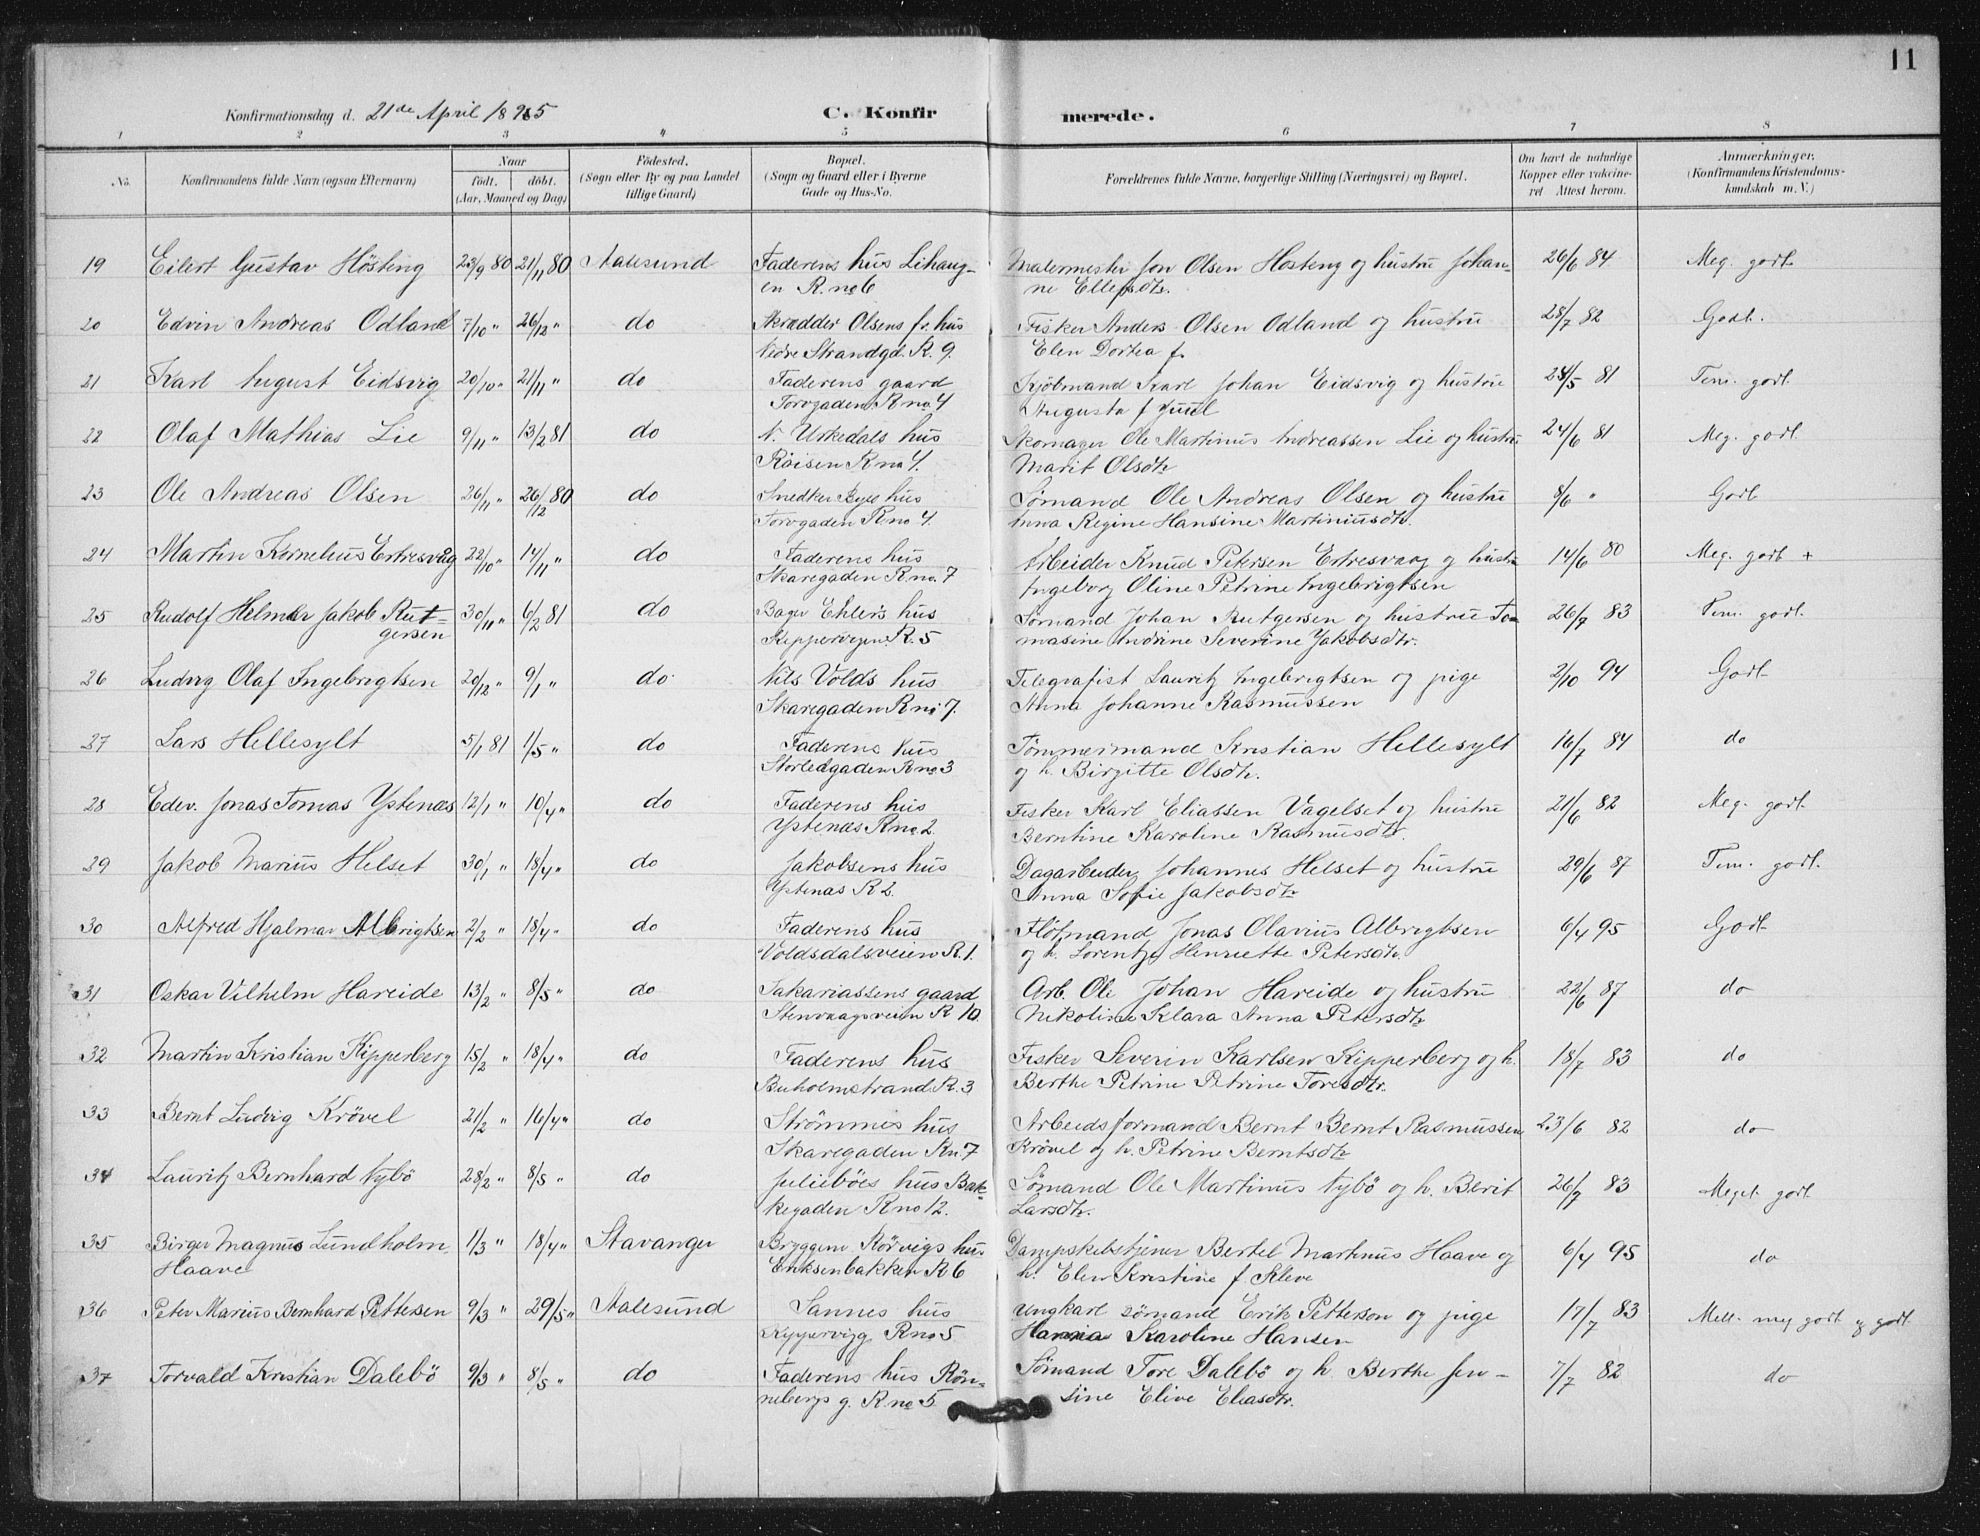 11
Konfirmationsdag d. 21de April 1895 C. Konfirmerede.
1 2 3 4 5 6 7 8
No. Konfirmandens fulde Navn (ogsaa Efternavn) Naar født. døbt. (Aar, Maaned og Dag) Fødested. (Sogn eller By og paa Landet tillige Gaard) Bopæl. (Sogn og Gaard eller i Byerne Gade og Hus-No. Forældrenes fulde Navne, borgerlige Stilling (Næringsvei) og Bopæl. Om havt de naturlige Kopper eller vakcineret Attest herom. Anmærkninger. (Konfirmandens Kristendomskundskab m. V.)
19 Eilert Gustav Hösteng 23/9 80 21/11 80 Aalesund Faderens hus Lihaug- Malermester Jon Olsen Hosteng og hustru Johan- 26/6 84 Meg. godt
en R. no 6 ne Ellefsdtr.
20 Edvin Andreas Odland 7/10 " 26/12 " do Skrædder Olsens fr. hus Fisker Anders Olsen Odland og hustru 28/7 82 Godt.
Nedre Strandgd. R. 9. Elen Dortea f.
21 Karl August Eidsvig 20/10 " 21/11 " do Faderens gaard Kjöbmand Karl Johan Eidsvig og hustru 24/5 81 Tem. godt.
Torvgaden R no 4 Augusta f. Juul
22 Olaf Mathias Lie 9/11 " 13/2 81 do N. Urkedals hus Skomager Ole Martinus Andreassen Lie og hustru 24/6 81 Meg. godt.
Röisen R no 4. Marit Olsdtr
23 Ole Andreas Olsen 26/11 " 26/12 80 do Snedker Byes hus Sømand Ole Andreas Olsen og hustru 8/6 " Godt
Torvgaden R no 4. Anna Regine Hansine Martiniusdtr.
24 Martin Kornelius Ertresvåg 22/10 " 14/11 " do Faderens hus Arbeider Knud Petersen Ertresvaag og hustru 14/6 80 Meg. godt +
Skaregaden R no. 7 Ingeborg Oline Petrine Ingebrigtsen
25 Rudolf Helmer Jakob Rut- 30/11 " 6/2 81 do Bager Ehlers hus Sømand Johan Rutgersen og hustru To- 26/7 83 Tem. godt.
gersen Kippervegn R. 5 masine Andrine Severine Jakobsdtr.
26 Ludvig Olaf Ingebrigtsen 20/12 " 9/1 " do Nils Volds hus Telegrafist Lauritz Ingebrigtsen og pige 2/10 94 Godt
Skaregaden R no 7. Anna Johanne Rasmussen
27 Lars Hellesylt 5/1 81 1/5 " do Faderens hus Tømmermand Kristian Hellesylt 16/7 84 do
Storledgaden R no 3 og h. Birgitte Olsdtr.
28 Edev. Jonas Tomas Ystenæs 12/1 " 10/4 " do Faderens hus Fisker Karl Eliassen Vagelset og hustru 21/6 82 Meg. godt.
Ystenæs R no 2. Berntine Karoline Rasmusdtr.
29 Jakob Marius Helset 30/1 " 18/4 " do Jakobsens hus Dagarbeider Johannes Helset og hustru 29/6 87 Tem. godt.
Ystenæs R 2. Anna Sofie Jakobsdtr
30 Alfred Hjalmar Albrigtsen 2/2 " 18/4 " do Faderens hus Fløtmand Jonas Olavius Albrigtsen 6/4 95 Godt
Voldsdalsveien R. 1. og h. Lorentze Henriette Petersdtr.
31 Oskar Vilhelm Hareide 13/2 " 8/5 " do Sakariassens gaard Arb. Ole Johan Hareide og hustru 22/6 87 do
Stenvaagsveien R 10. Nikoline Klara Anna Petersdtr
32 Martin Kristian Kipperberg 15/2 " 18/4 " do Faderens hus Fisker Severin Karlsen Kipperberg og h. 18/7 83 do
Buholmstrand R. 3 Berthe Petrine Petrine Toresdtr.
33 Bernt Ludvig Krövel 21/2 " 16/4 " do Strömmes hus Arbeidsformand Bernt Bernt Rasmussen 23/6 82 do
Skaregaden R n. 7 Krövel og h. Petrine Berntsdtr
34 Lauritz Bernhard Nybö 28/2 " 8/5 " do Julieböes hus Bak- Sömand Ole Martinus Nybö og h. Berit 26/7 83 Meget godt
kegaden R no 12. Larsdtr.
35 Birger Magnus Lundholm 1/3 " 18/4 " Stavanger Bryggem Rörvigs hus Dampskibstjener Bertel Martinus Haave og 6/4 95 do
Haave Eriksenbakken R 6 h. Elen Kristine f. Kleve
36 Peter Marius Bernhard Pettersen 9/3 " 29/5 " Aalesund Sannes hus Ungkarl sömand Erik Petterson og pige 17/7 83 Mell. meg godt og godt
Kippervigg R no 5 Hanna Karoline Hansen
37 Torvald Kristian Dalebö 9/3 " 8/5 " do Faderens hus Rön- Sömand Tore Dalebö og h. Berthe Jen- 7/7 82 do
nebergs g. R no 5. sine Elive Eliasdtr.